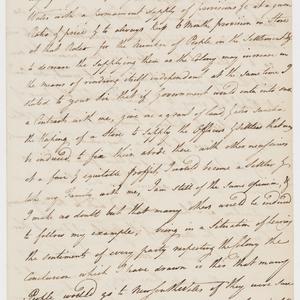 Notes with a permanent supply of provisions &c at a given
Rate of price & to always keep 6 Months provision in Store
at that Rate for the Number of People in the Settlement &
to decrease the supplying them as the Colony may increase in
the means of rendering itself independent at the same time I
stated to your that if Government would enter into such
a Contract with me, give me a grant of land,
the making of a Store to supply the Officers & Settlers that may
be induced to fix their abode there with other necessaries
at a fair & equitable profit I would become a Settler &
take my Family with me, I am still of the same opinion, &
I make no doubt but that many others would be induced
to follow my example; being in a Situation of having
the sentiments of every party respecting the Colony the
Conclusion which I have drawn is this that many
People would go to New South Wales if they were sure